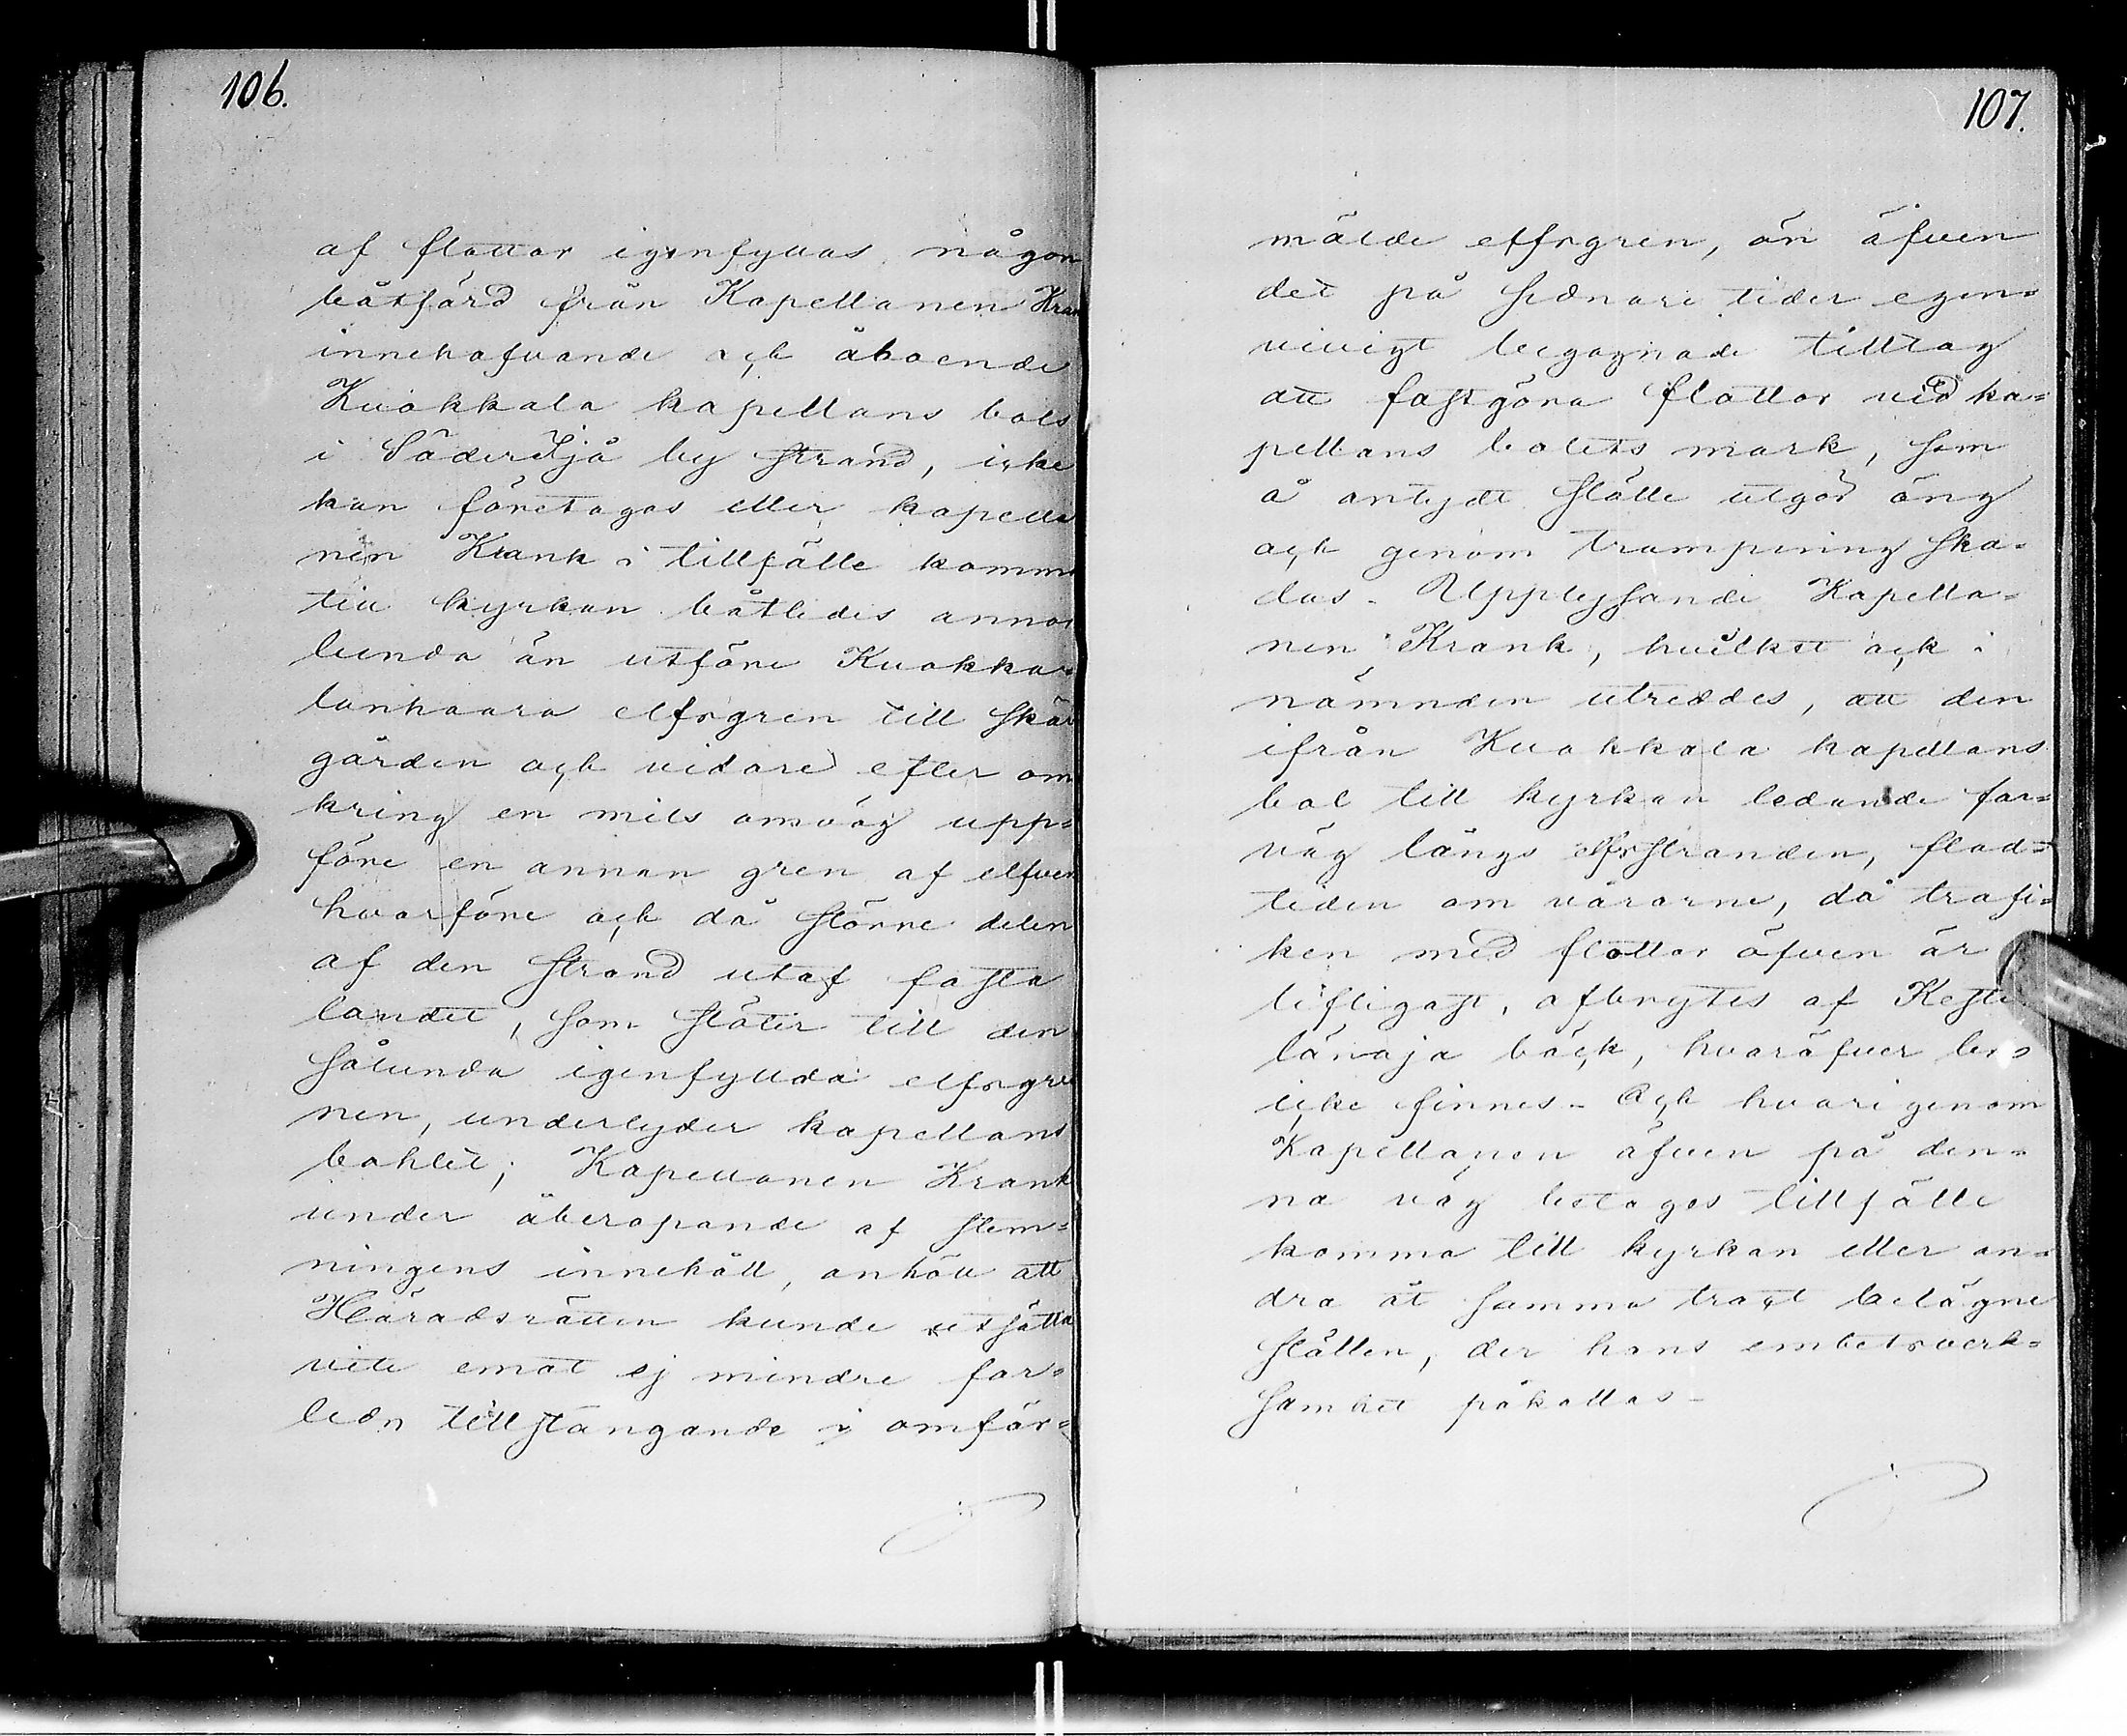 106.
af flottor igenfyllas, någon
båtfärd från Kapellanen Kran
innehafvande och åboende
Kuokkala kapellans bols
i Säderåsjå by strand, icke
kan företagas eller kapella
nen Krank i tillfälle komma
till kyrkan båtledes annor
lunda än utföre Kuokka-
lanhaara elfsgren till skär
gården och vidare efter om
kring en mils omväg upp-
före en annan gren af elfven
hvarföre och då större delen
af den strand utaf fasta
landet, som stöter till den
sålunda igenfyllda elfsgre
nen, underlyder kapellans
bohlet; Kapellanen Krank
under åberopande af stem-
ningens innehåll, anhöll att
Häradsrätten kunde utsätta
vite emot ej mindre far-
leds tillstängande i omför-
107.
mälde elfsgren, än äfven
det på sednare tider egen-
villigt begagnade tilltag
att fastgöra flottor vid ka-
pellans bolets mark, som
å antydt ställe utgör äng
och genom trampning ska-
das. Upplysande Kapella-
nen Krank, hvilket ock i
nämnden utreddes, att den
ifrån Kuokkala kapellans
bol till kyrkan ledande far-
väg längs elfsstranden, flod-
tiden om vårarne, då trafi-
ken med flottor äfven är
lifligast, afbrytes af Kesti
länoja bäck, hvaröfver bro
icke finnes. Och hvarigenom
Kapellanen äfven på den-
na väg betages tillfälle
komma till kyrkan eller an-
dra åt samma tragt belägne
ställen, der hans embetsverk-
samhet påkallas